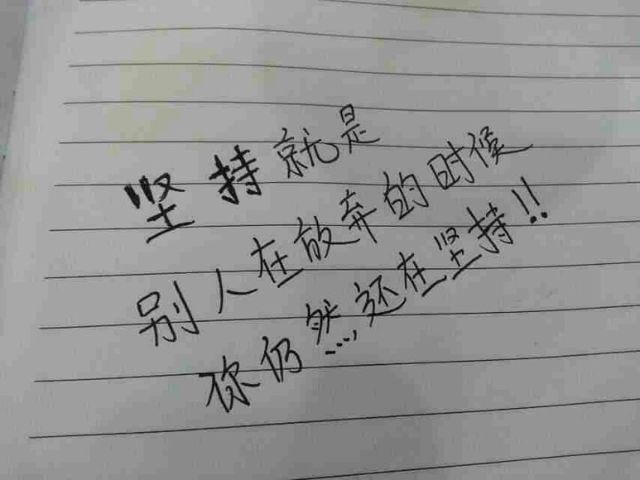 坚持就是
别人在放弃的时候
你仍然还在坚持!!